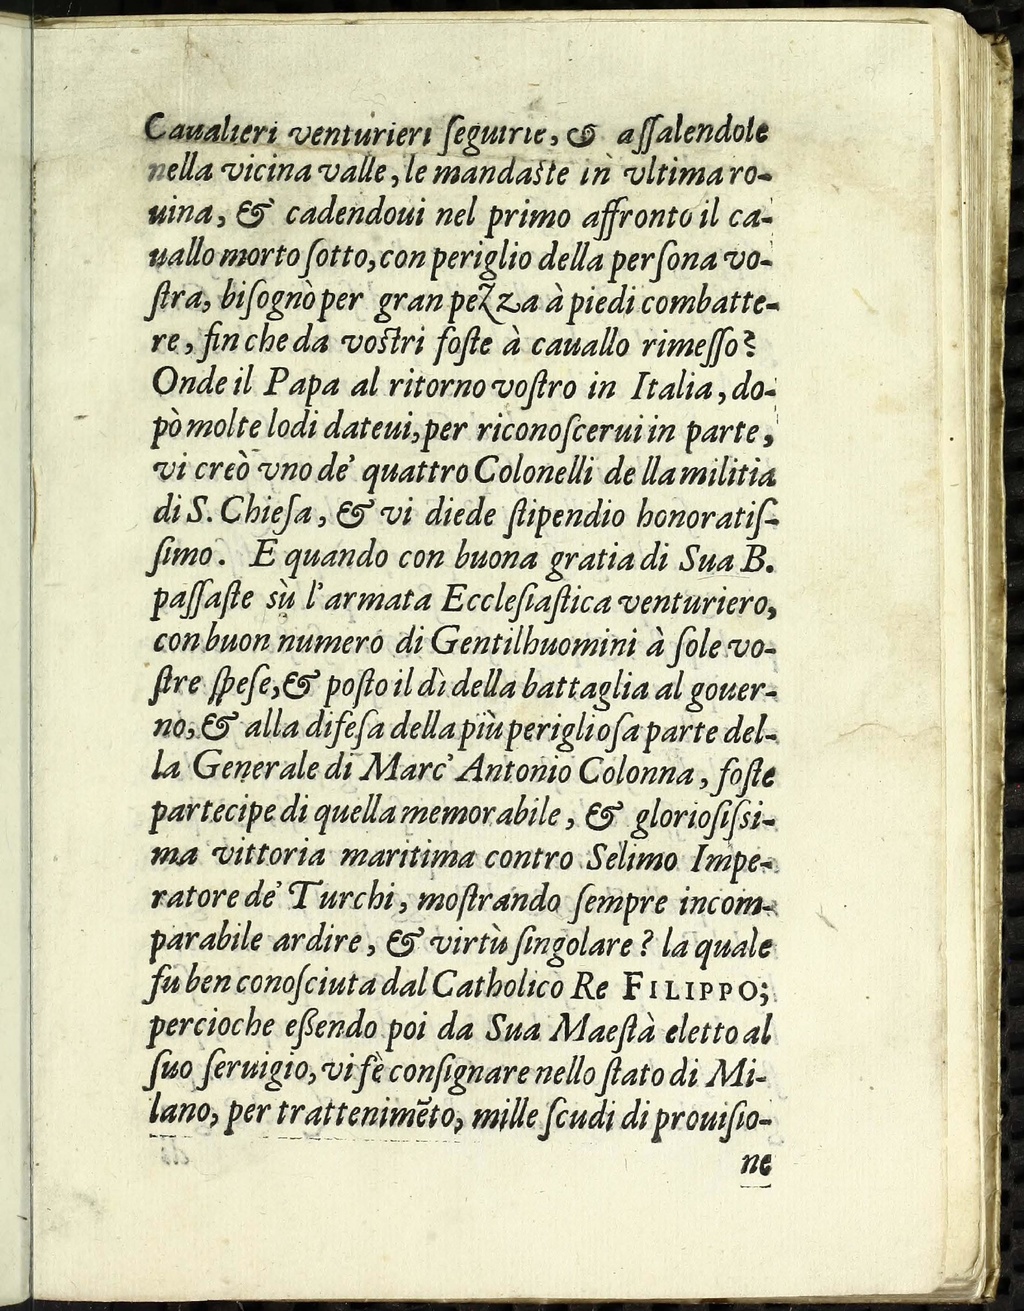 Caualieri venturieri ſeguirle, & aſſalendole
nella vicina valle, le mandaſte in vltima ro-
uina, & cadendoui nel primo affronto il ca-
uallo morto ſotto, con periglio della perſona vo-
ſtra, biſognò per gran pezza à piedi combatte-
re, fin che da voſtri foſte à cauallo rimeſſo?
Onde il Papa al ritorno voſtro in Italia, do-
pò molte lodi dateui, per riconoſcerui in parte,
vi creò vno de' quattro Colonelli de lla militia
di S. Chieſa, & vi diede ſtipendio honoratiſ-
ſimo. E quando con buona gratia di Sua B.
paſſaſte sù l'armata Eccleſiaſtica venturiero,
con buon numero di Gentilhuomini à ſole vo-
ſtre ſpeſe, & poſto il dì della battaglia al gouer-
no, & alla difeſa della più periglioſa parte del-
la Generale di Marc' Antonio Colonna, foſte
partecipe di quella memorabile, & glorioſiſsi-
ma vittoria maritima contro Selimo Impe-
ratore de' Turchi, moſtrando ſempre incom-
parabile ardire, & virtù ſingolare? la quale
fu ben conoſciuta dal Catholico Re FILIPPO;
percioche eßendo poi da Sua Maeſtà eletto al
ſuo ſeruigio, vi fè conſignare nello ſtato di Mi-
lano, per trattenimẽto, mille ſcudi di prouiſio-
ne